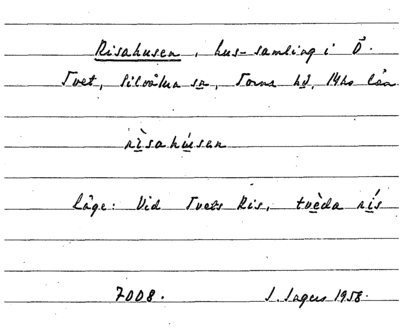 Risahusen, hus-samling i Ö.
Tvet, Silvåkra sn, Torna hd, Mhs län
rìsahúsen
Läge: Vid Tvets Ris, tvèda rís
7008. J. Sagers 1958.